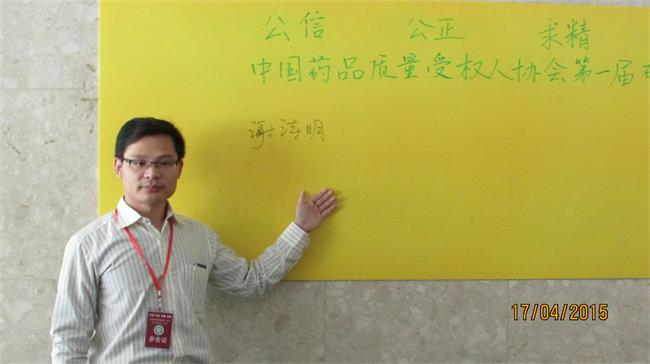 公信 公正 求精
中国药品质量受权人协会第一届
谢淳明
参会证
17/04/2015